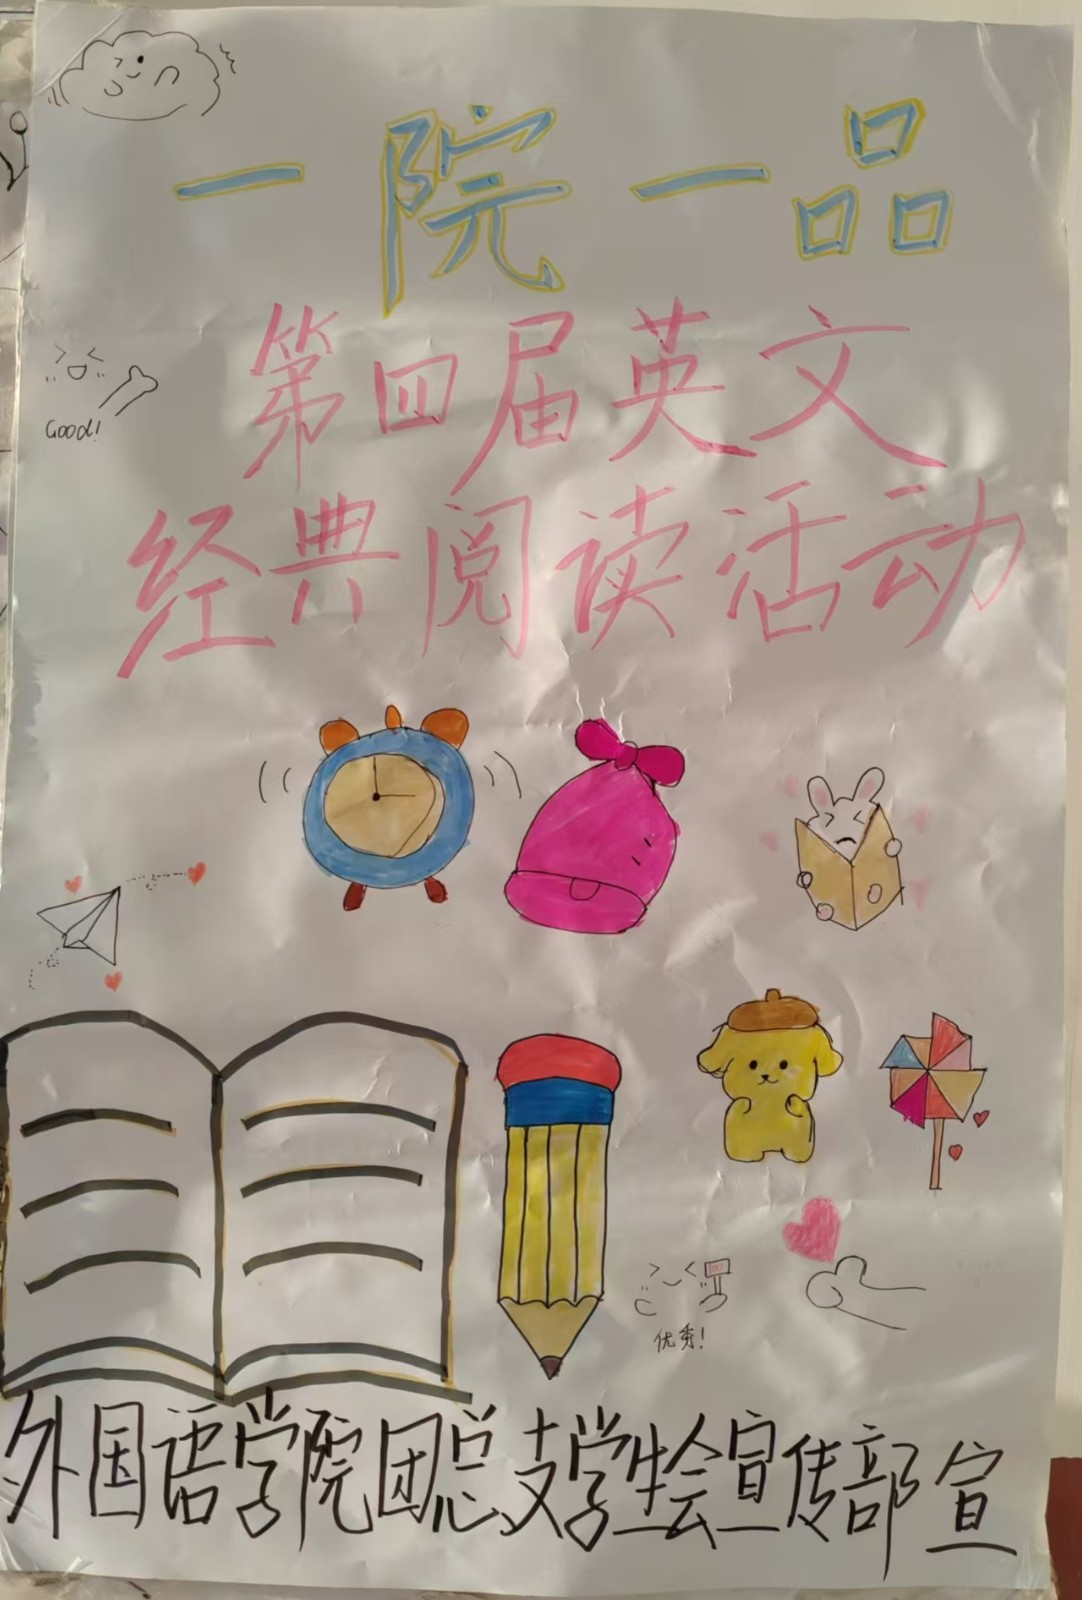 一院一品
第四届英文
Good!
经典阅读活动
100
优秀!
外国语学院团总支学生会宣传部宣